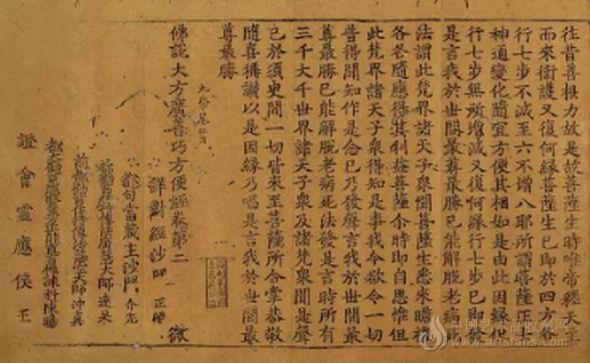 往昔善根力故是故菩薩生時唯帝釋天主
而來衛護又復何緣菩薩生已即於四方各
行七步不減至六不增八耶所謂菩薩正士
神通變化隨宜方便其相如是由此因緣但
行七步無所增減又復何緣行七步已即作
是言我於世間最尊最勝已能解脫老病死
法謂此梵界諸天子眾聞菩薩生悉來瞻禮
各各隨應得其利益菩薩尒時即自思惟但
此梵界諸天子眾得知是事我今欲令一切
普得聞知作是念已乃發聲言我於世間最
尊最勝已能解脫老病死法發是言時所有
三千大千世界諸天子眾及諸梵眾聞是聲
已於須臾間一切皆來至菩薩所合掌恭敬
隨喜稱讚以是因緣乃唱是言我於世間最
尊最勝
佛說大方廣善巧方便經卷第二 微
詳對經沙門
都勾當藏主沙門
證會靈應侯王